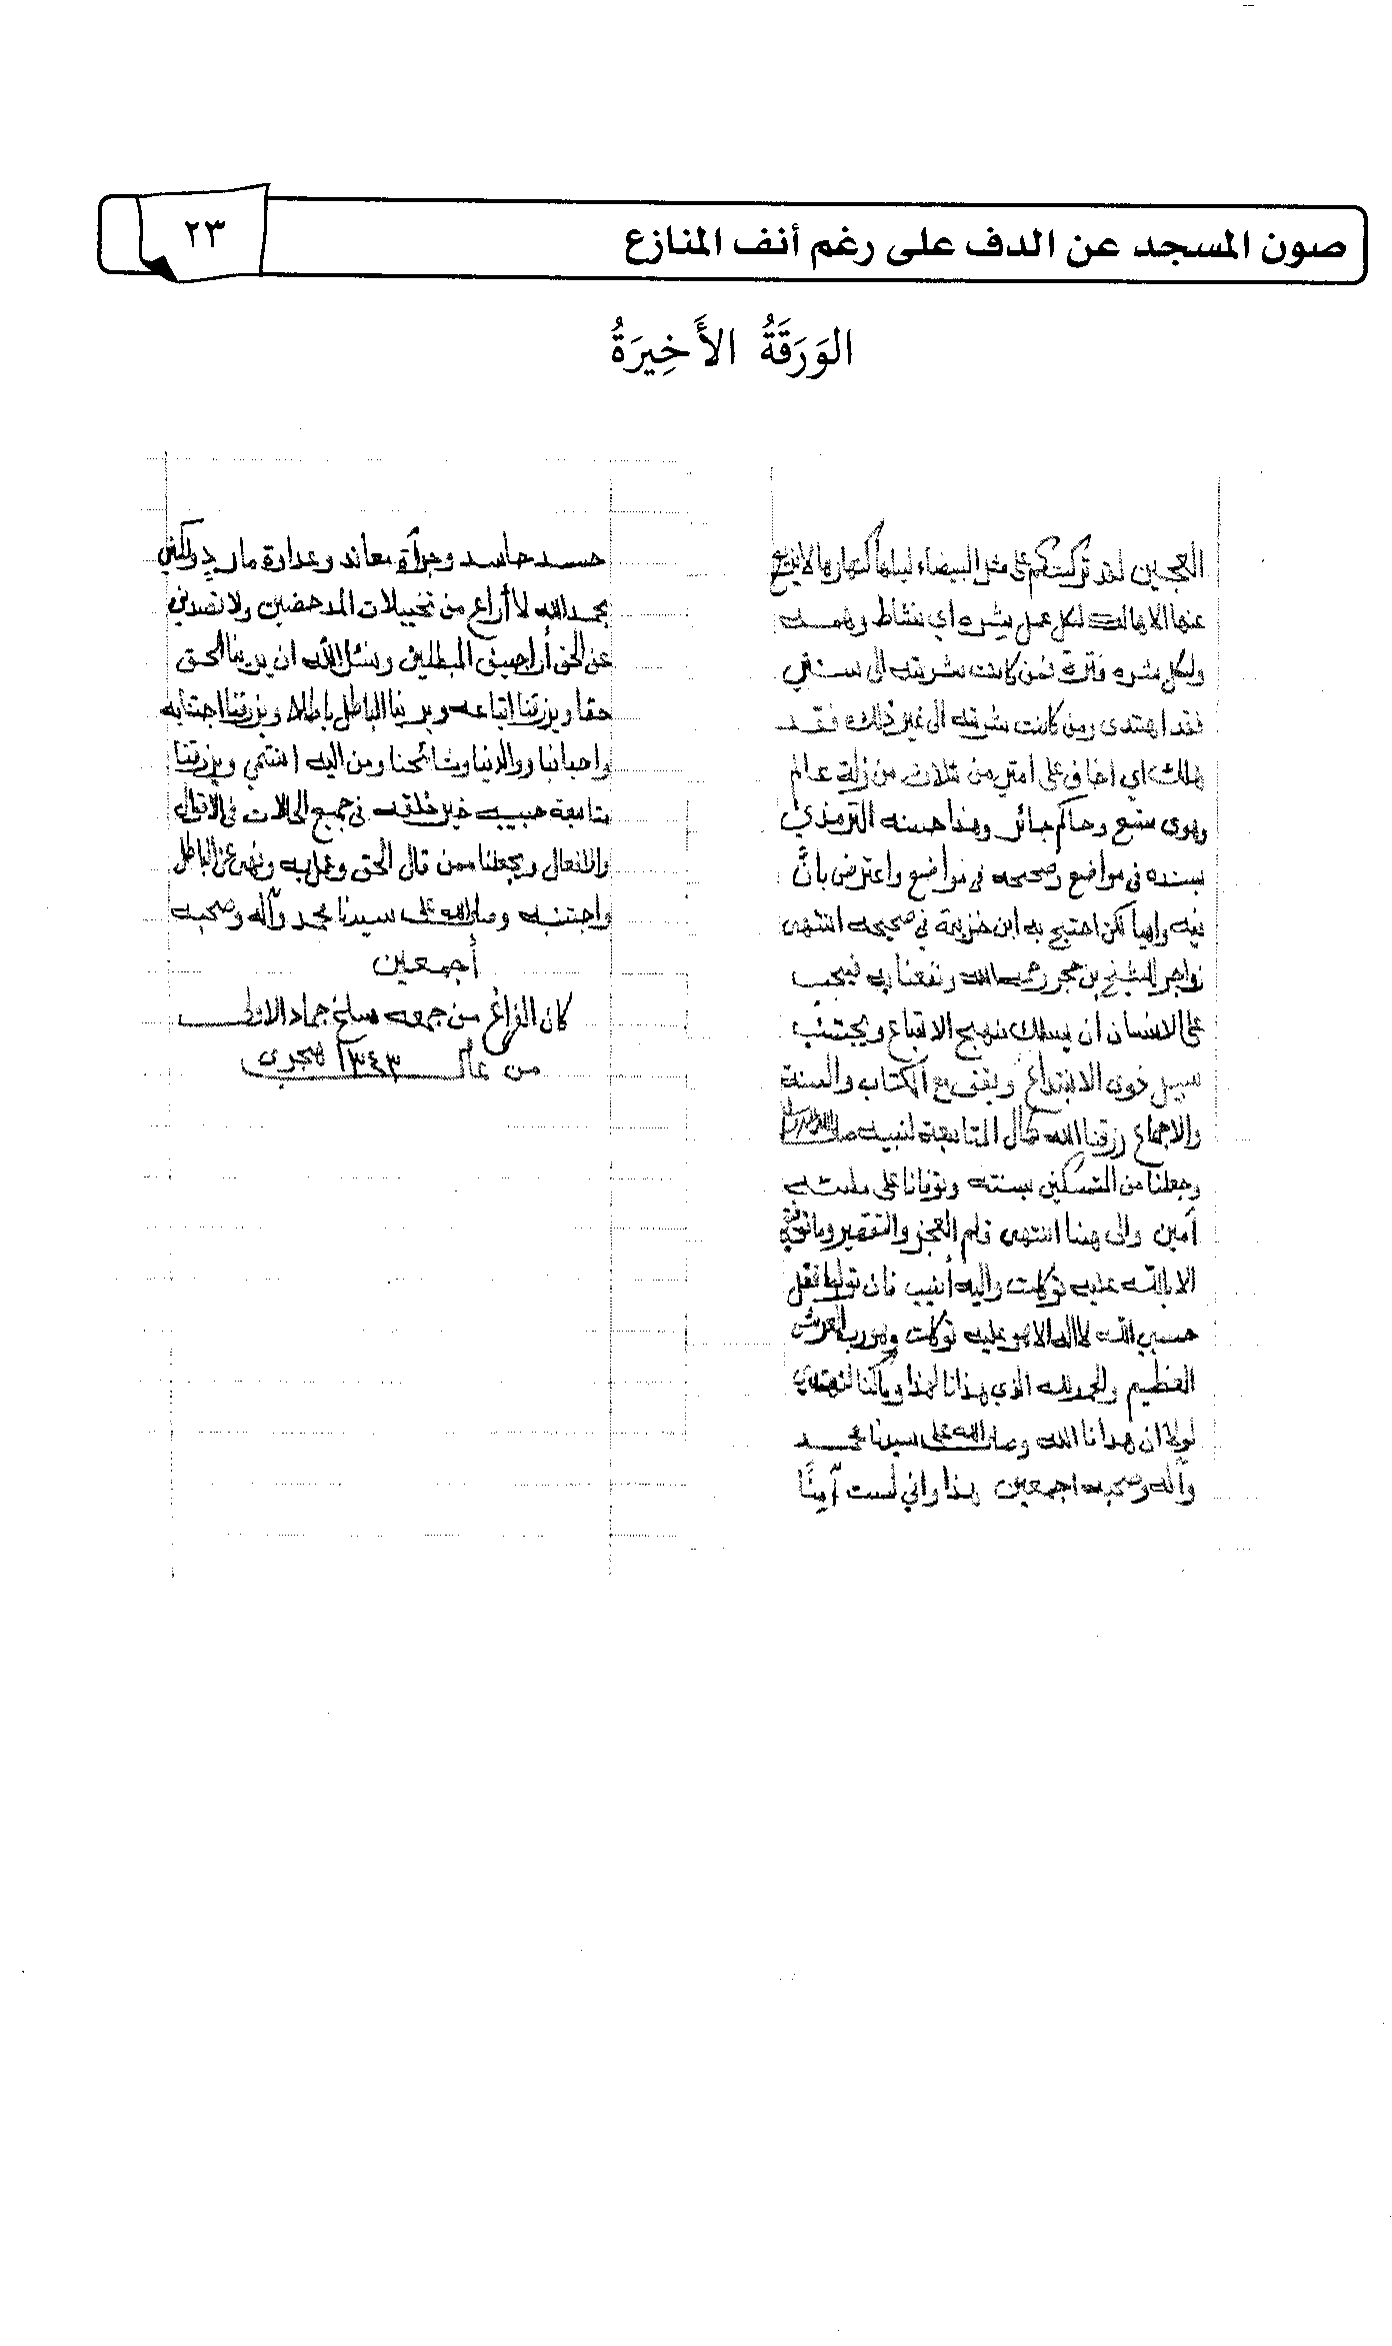 صون المسجد عن الدف على رغم أنف المنازع
٢٣
الوَرَقَةُ الأَخِيرَةُ
لقد تركتكم على مثل البيضاء ليلها كنهارها لا يزيغ
عنها الا هالك لكل عمل شره اي نشاط وهمه
ولكل شره فترة فمن كانت شرته الى سنتي
فقد اهتدى ومن كانت شرته الى غير ذلك فقد
هلك اي اخاف على امتي من ثلاث من زلة عالم
وهوى متبع وحاكم جائر وهذا حسنه الترمذي
بسنده في مواضع وصححه في مواضع واعترض بانَّ
فيه واهيا لكن احتج به ابن خزيمة في صحيحه انتهى
زواجر الشيخ بن حجر رحمه الله ونفعنا به فيجب
على الانسان ان يسلك منهج الاتباع ويجتنب
سبيل ذوى الابتداع ويقف مع الكتاب والسنة
والاجماع رزقنا الله كمال المتابعة لنبيه صلى الله عليه وسلم
وجعلنا من المتمسكين بسنته وتوفانا على ملته
آمين والى هنا انتهى قلم العجز والتقصير وما توفيقي
الا بالله عليه توكلت واليه أنيب فان تولوا فقل
حسبي الله لا اله الا هو عليه توكلت وهو رب العرش
العظيم والحمد لله الذي هدانا لهذا وما كنا لنهتدي
لولا ان هدانا الله وصلى الله على سيدنا محمد
وآله وصحبه اجمعين هذا واني لست آمنًا
حسد حاسد وجرأة معاند وعداوة مارد ولكني
بحمد الله لا أراع من تخييلات المدحضين ولا تصدني
عن الحق أراجيف المبطلين ونسئل الله ان يرينا الحق
حقا ويرزقنا اتباعه ويرينا الباطل باطلا ويرزقنا اجتنابه
واحبابنا ووالدينا ومشائخنا ومن اليه انتمي ويرزقنا
متابعة حبيبه خير خلقه في جميع الحالات في الاقوال
والافعال ويجعلنا ممن قال الحق وعمل به ونهى عن الباطل
واجتنبه وصلى الله على سيدنا محمد وآله وصحبه
أجمعين
كان الفراغ من جمعه سلخ جماد الاولى
من عام ١٣٤٣ هجرى